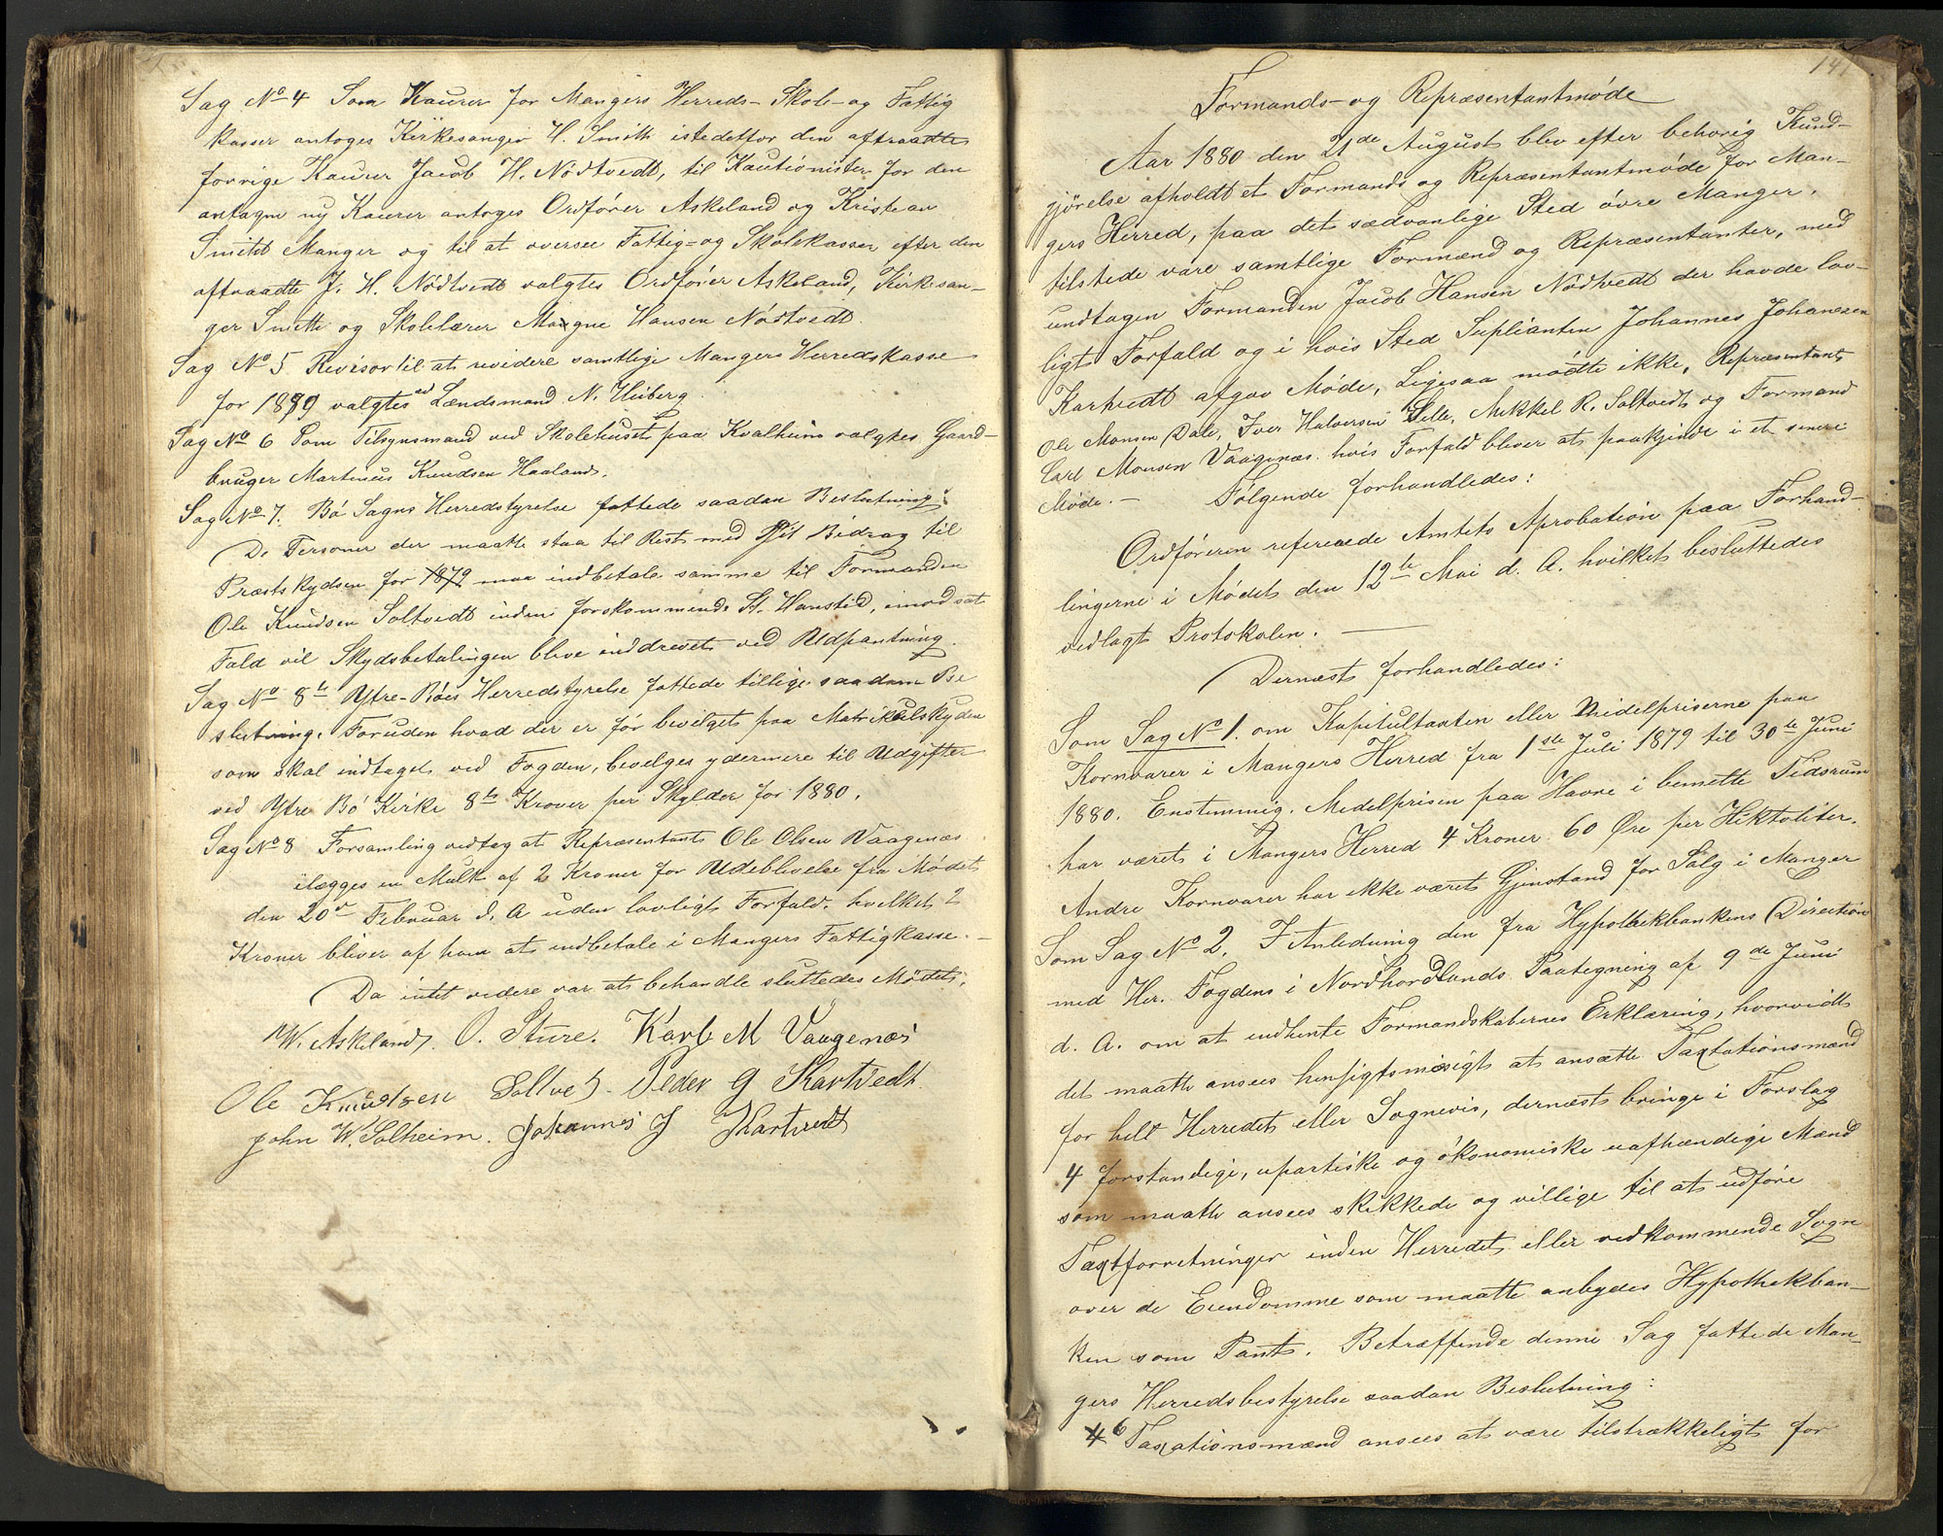 Sag No 4 Som Kaserer for Mangers Herreds- Skole- og Fattig
kasser antoges Kirkesanger H. Smith istedetfor den aftraadte
forrige Kaserer Jacob H. Nödtvedt, til Kautionister for den
antagne ny Kaserer antoges Ordförer Askeland og Kristian
Smith Manger og til at oversee Fattig- og Skolekassen efter den
aftraadte J. H. Nödtvedt valgtes Ordförer Askeland, Kirkesan-
ger Smith og Skolelærer Mangne Hansen Nödtvedt.
Sag No 5 Revisor til at revidere samtlige Mangers Herredskasse
for 1879 valgtes Lændsmand N. Heiberg.
Sag No 6 Som Tilsynsmand ved Skolehuset paa Kvalheim valgtes Gaard-
bruger Martinus Knudsen Haaland.
Sag No 7. Bö Sogns Herredstyrelse fattede saadan Beslutning:
De Personer der maatte staa til Rest med Sit Bidrag til
Præstskydsen for 1879 maa indbetale samme til Formanden
Ole Knudsen Soltvedt inden forskommende St. Hanstid, imodsat
Fald vil Skydsbetalingen blive inddrevet ved Udpantning.
Sag No 8de Ytre-Böes Herredstyrelse fattede tillige saadan Be
slutning. Foruden hvad der er för bevilget paa Matrikulskyden
som skal indtaget ved Fogden, bevilges ydermere til Udgifter
ved Ytre Bö Kirke 8te Kroner per Skylder for 1880.
Sag No 8 Forsamling vedtog at Repræsentant Ole Olsen Vaagenæs
ilægges en Mulk af 2 Kroner for Udeblivelse fra Mödet
den 20de Februar d. A uden lovligt Forfald. hvilket 2
Kroner bliver af ham at indbetale i Mangers Fattigkasse. -
Da intet videre var at behandle sluttedes Mödet.
W. Askeland. O. Sture. Karl M Vaagenæs
Ole Knudsen Soltvet. Peder G Kartvedt
John W. Solheim. Johannes J Kartvedt
141
Formands- og Repræsentantmöde
Aar 1880 den 21de August blev efter behörig Kund-
gjörelse afholdt et Formands og Repræsentantmöde for Man-
gers Herred, paa det sædvanlige Sted övre Manger.
tilstede vare samtlige Formænd og Repræsentanter, med
undtagen Formanden Jacob Hansen Nödtvedt der havde lov-
ligt Forfald og i hvis Sted Suplianten Johannes Johannesen
Kartvedt afgav Möde, Ligesaa mödte ikke, Repræsentant
Ole Monsen Dale, Iver Halversen Selle, Mikkel R. Soltvedt og Formand
Carl Monsen Vaagenæs. hvis Forfald bliver at paakjende i et senere
Möde. - Fölgende forhandledes:
Ordföreren refererede Amtets Aprobation paa Forhand-
lingerne i Mödet den 12te Mai d. A. hvilket besluttedes
vedlagt Protokolen. -
Dernæst forhandledes:
Som Sag No 1. om Kapitultaxten eller Midelpriserne paa
Kornvarer i Mangers Herred fra 1ste Juli 1879 til 30te Juni
1880. Enstemmig. Medelprisen paa Havre i bemelte Tidsrum
har været i Mangers Herred 4 Kroner 60 Øre per Hektoliter.
Andre Kornvarer har ikke været Gjenstand for Salg i Manger
Som Sag No 2. I Anledning den fra Hypothekbankens Direction
med Hr. Fogdens i Nordhordlands Paategning af 9de Juni
d. A. om at indhente Formandskabernes Erklæring, hvorvidt
det maatte ansees hensigtsmæsigt at ansætte Taxtationsmænd
for helt Herredet eller Sognevis, dernæst bringe i Forslag
4 forstandige, upartiske og ökonomiske uafhændige Mænd
som maatte ansees skikkede og villige til at udföre
Taxtforretninger inden Herredet eller vedkommende Sogn
over de Eiendomme som maatte anbydes Hypothekban-
ken som Pant. Betræffende denne Sag fattede Man-
gers Herredsbestyrelse saadan Beslutning:
6 Taxationsmænd ansees at være tilstrækkeligt for